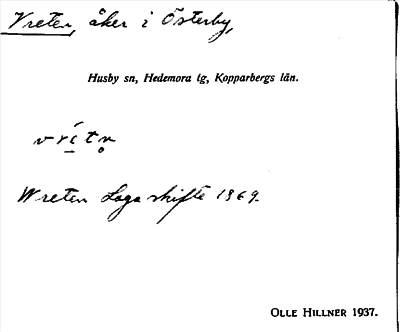 Vreten, åker i Österby,
Husby sn, Hedemora tg, Kopparbergs län.
vrítn̥
Wreten Laga skifte 1869.
OLLE HILLNER 1937.